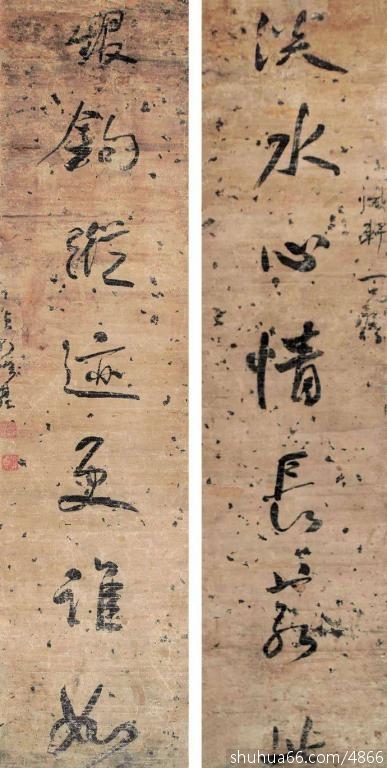 淡水心情長若此
銀鉤蹤迹更誰如
shuhua66.com/4866